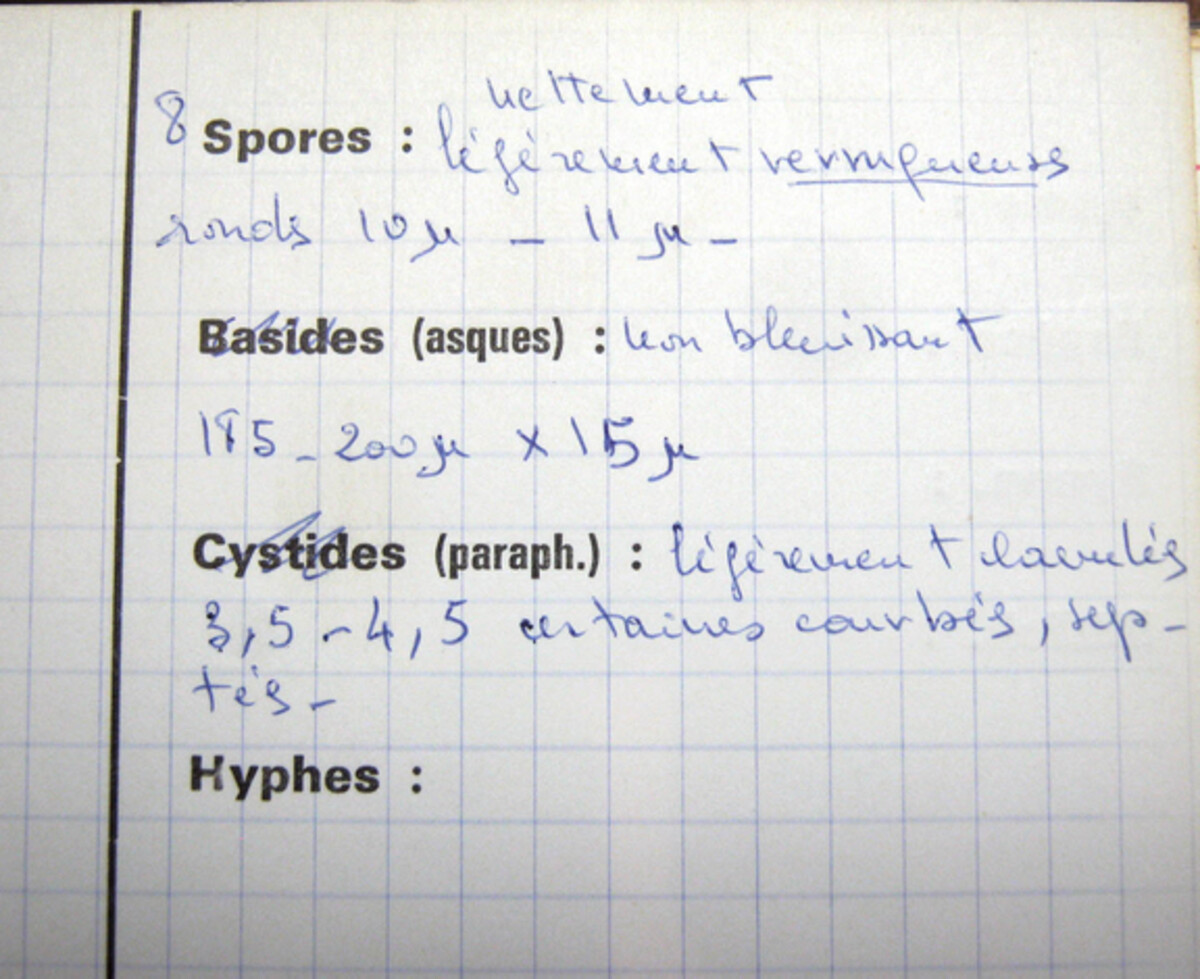 nettement
8 Spores : légérement verruqueuses
ronds 10 µ - 11 µ -
Basides (asques) : non bleuissant
185 - 200 µ × 15 µ
Cystides (paraph.) : légérement clavulés
3,5 - 4,5 certaines courbés, sep-
tés -
Hyphes :